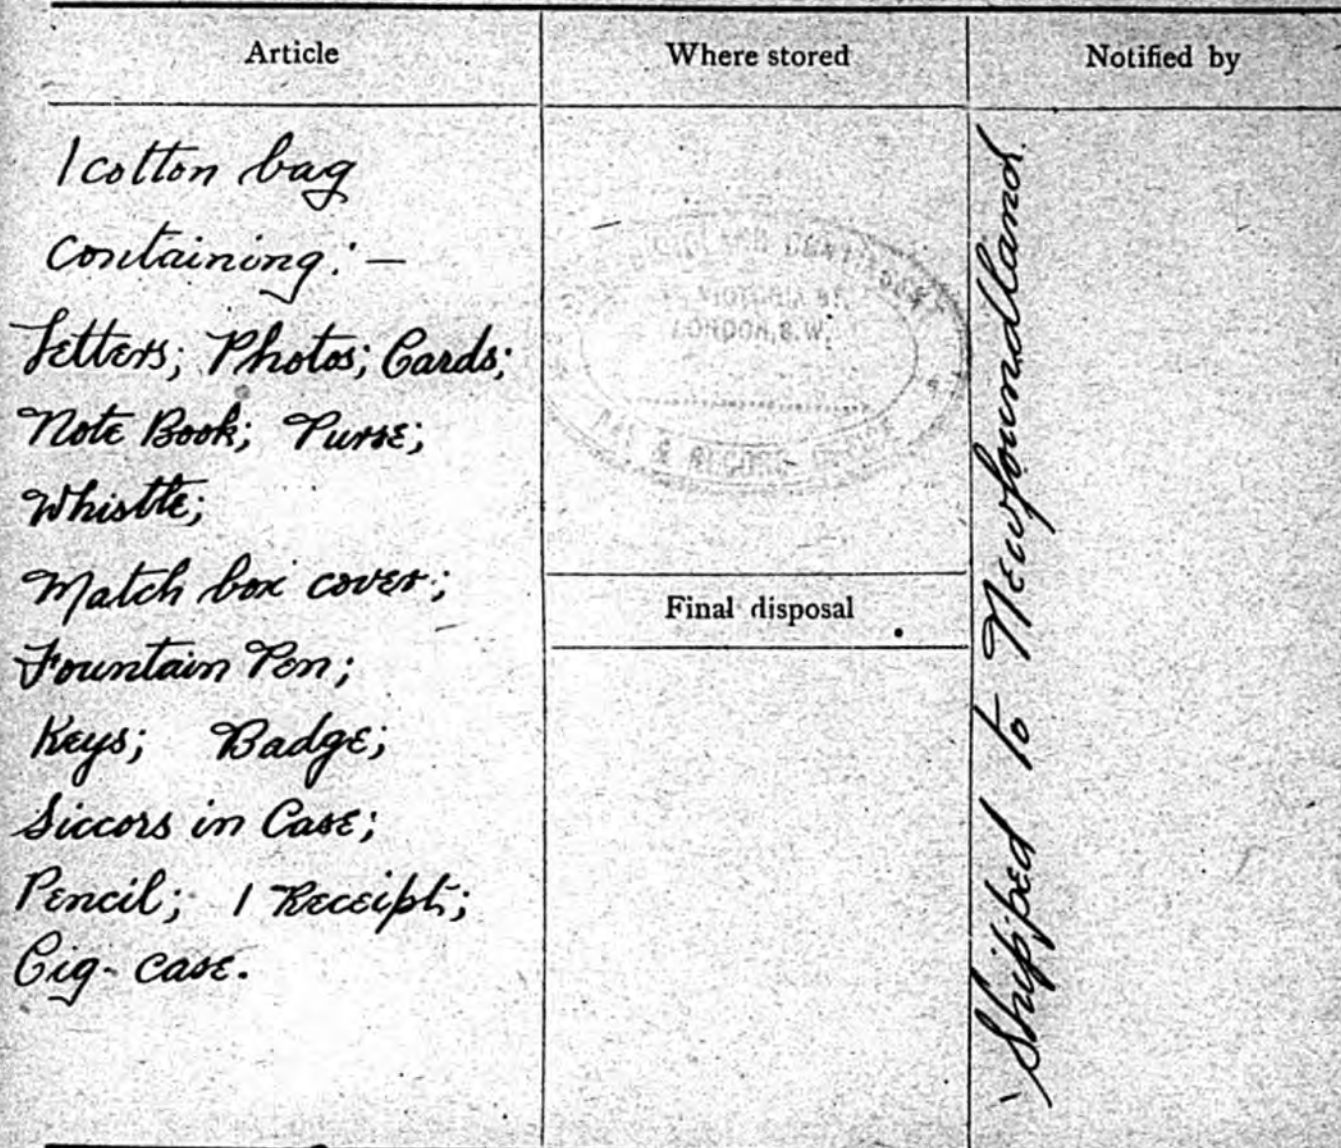 Article
1 cotton bag
containing:—
Letters; Photos; Cards;
Note Book; Purse;
Whistle;
Match box cover;
Fountain Pen;
Keys; Badge;
Siccors in Case;
Pencil; 1 Receipt;
Cig- case.
Where stored
LONDON, S.W.
Final disposal
Notified by
Shipped to Newfoundland.